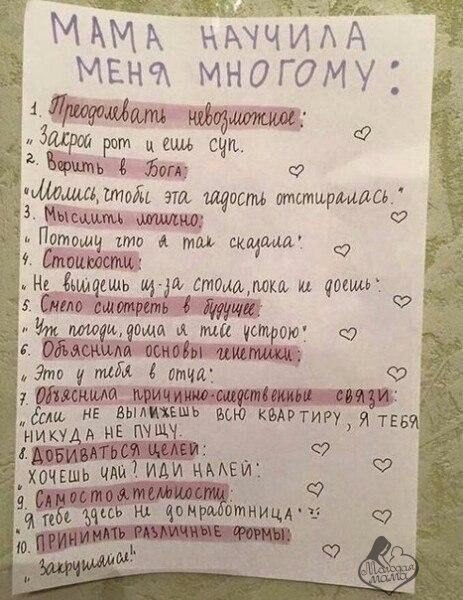 МАМА НАУЧИЛА
МЕНЯ МНОГОМУ:
1. Преодолевать невозможное:
„Закрой рот и ешь суп.
2. Верить в Бога:
„Молись, чтобы эта гадость отстиралась."
3. Мыслить логично:
„Потому что я так сказала"
4. Стойкости:
„Не выйдешь из-за стола, пока не доешь"
5. Смело смотреть в будущее:
„Уж погоди, дома я тебе устрою"
6. Объяснила основы генетики:
„Это у тебя в отца"
7. Объяснила причинно-следственные связи:
„Если НЕ ВЫЛИЖЕШЬ ВСЮ КВАРТИРУ, Я ТЕБЯ
НИКУДА НЕ ПУЩУ.
8. ДОБИВАТЬСЯ ЦЕЛЕЙ:
„ХОЧЕШЬ ЧАЙ? ИДИ НАЛЕЙ"
9. САМОСТОЯТЕЛЬНОСТИ:
„Я тебе здесь не домработница"
10. ПРИНИМАТЬ РАЗЛИЧНЫЕ ФОРМЫ:
„Закругляйся!"
Молодая
мама